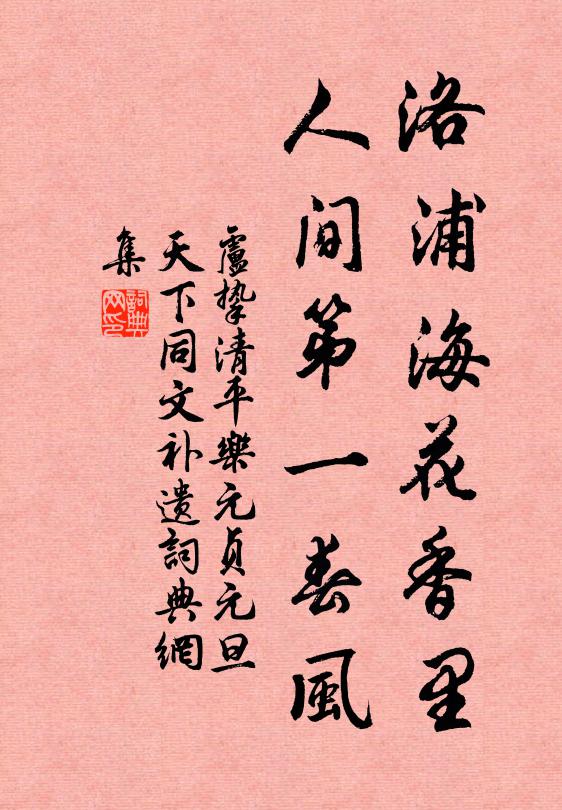 洛浦海花香里
人间第一春風
盧摯清平樂元貞元旦
天下同文补遗詞典網
集
詞典网印